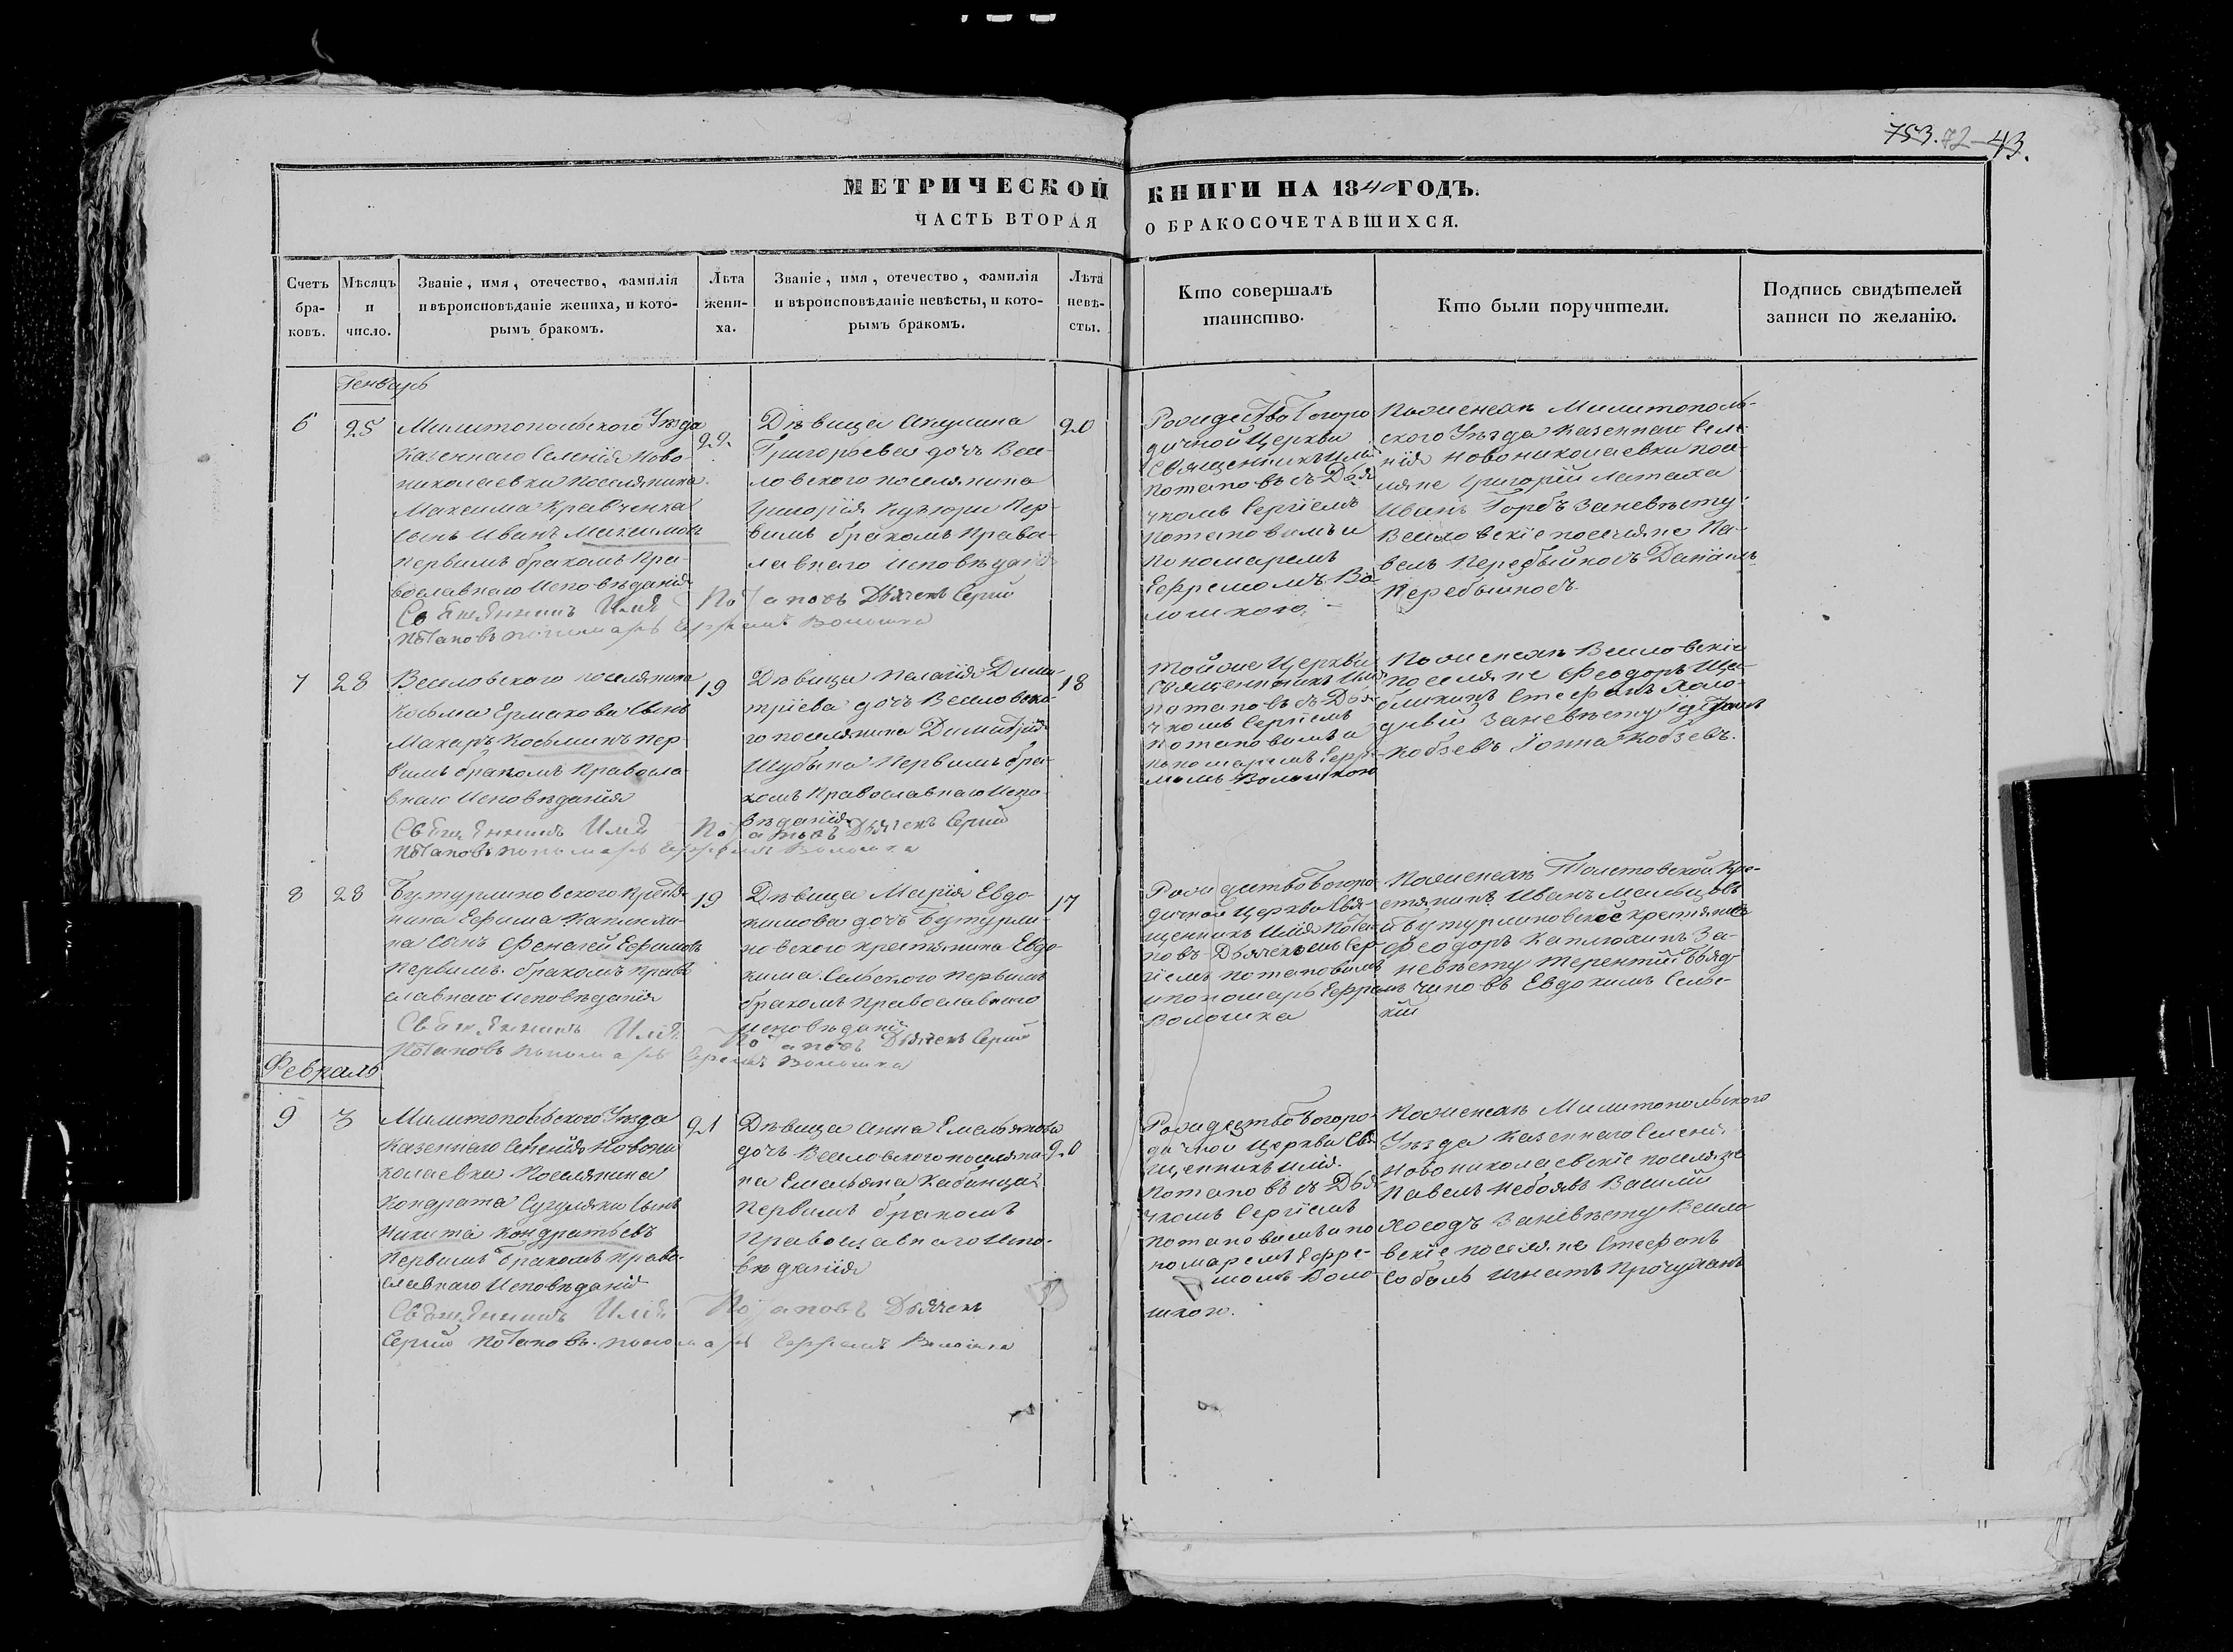 753. 72 43.
МЕТРИЧЕСКОЙ КНИГИ НА 1840 ГОДЪ.
ЧАСТЬ ВТОРАЯ О БРАКОСОЧЕТАВШИХСЯ.
Счетъ
бра-
ковъ.
Мѣсяцъ
и
число.
Званіе, имя, отечество, фамилія
и вѣроисповѣданіе жениха, и кото-
рымъ бракомъ.
Лѣта
жени-
ха.
Званіе, имя, отечество, фамилія
и вѣроисповѣданіе невѣсты, и кото-
рымъ бракомъ.
Лѣта
невѣ-
сты.
Кто совершалъ
таинство.
Кто были поручители.
Подпись свидѣтелей
записи по желанію.
Генварь
6
25
Милитопольского Уѣзда
Казеннаго Селенія Ново-
николаевки Поселянина
Максима Кравченка
сынъ Иванъ Максимовъ
первымъ бракомъ Пра-
вославнаго Исповѣданія
22
Дѣвица Акулина
Григорьева дочь Весе-
ловского поселянина
Григорія Пер-
вымъ бракомъ Правос-
лавнаго Исповѣданія
20
Рождество Богоро
дичной Церкви
Священникъ Илія
Потаповъ съ Дья
чкомъ Сергіемъ
Потаповымъ и
Пономаремъ
Ефремомъ Во
лошкою
По женехѣ Милитополь-
ского Уѣзда Казеннаго Селе
нія Новониколаевки посе-
ляне Григорій Латаха
Иванъ Горбъ за невѣсту
Веселовскіе поселяне Па-
велъ Перебыйносъ Даніилъ
Перебыйносъ
Священникъ Илія Потаповъ Дьячекъ Сергій
Потаповъ пономарь Ефремъ Волошка
7
28
Веселовского поселянина
Косьма Ермакова сынъ
Макаръ Косьминъ пер-
вымъ бракомъ Правосла-
внаго Исповѣданія
19
Дѣвица Пелагія Дими
тріева дочь Веселовско-
го поселянина Димитрія
Шубына Первымъ бра-
комъ Православнаго Испо-
вѣданія
18
Той же Церкви
Священникъ Илія
Потаповъ съ Дья-
чкомъ Сергіемъ
Потаповымъ и
пономаремъ Ефре-
момъ Волошкою
По женехѣ Веселовскіе
поселяне Феодоръ Ще-
блыкинъ Стефанъ Холо-
дный за невѣсту
Кобзевъ Іонна Кобзевъ.
Священникъ Илія Потаповъ Дьячекъ Сергій
Потаповъ пономарь Ефремъ Волошка
8
28
Бутурлиновского Крестья
нина Ефима Каплюхи-
на сынъ Ефимовъ
Первымъ бракомъ Право
славнаго Исповѣданія
19
Дѣвица Марія Евдо-
кимова дочь Бутурли-
новского крестьянина Евдо
кима Сельского первымъ
бракомъ Православнаго
Исповѣданія
17
Рождество Богоро-
дичной Церкви Свя-
щенникъ Илія Пота-
повъ Дьячекомъ Сер-
гіемъ Потаповымъ
и пономарь Ефремъ
Волошка
По женехѣ Толстовской Кре-
стянинъ Иванъ Мальцовъ
и Бутурлиновской крестянинъ
Феодоръ Каплюхинъ за
невѣсту Терентій
Евдокимъ Сель-
скій
Священникъ Илія Потаповъ Дьячекъ Сергій
Потаповъ пономарь Ефремъ Волошка
Февраль
9
3
Милитопольского Уѣзда
Казеннаго Селенія Новони
колаевки Поселянина
Кондрата Сугуляки сынъ
Никита Кондратьевъ
Первымъ бракомъ Право-
славнаго Исповѣданія
21
Дѣвица Анна Емельянова
дочь Веселовского поселяни-
на Емельяна Кабанца
Первымъ бракомъ
Православнаго Испо-
вѣданія
20
Рождество Богоро-
дичной Церкви Свя
щенникъ Илія
Потаповъ съ Дья
чкомъ Сергіемъ
Потаповымъ и по
номаремъ Ефре-
момъ Воло-
шкою.
По женехѣ Милитопольского
Уѣзда Казеннаго Селенія
Новониколаевскіе поселяне
Павелъ Василій
за невѣсту Весело
вскіе поселяне Стефанъ
Соболь Игнатъ
Священникъ Илія Потаповъ Дьячекъ
Сергій Потаповъ пономарь Ефремъ Волошка